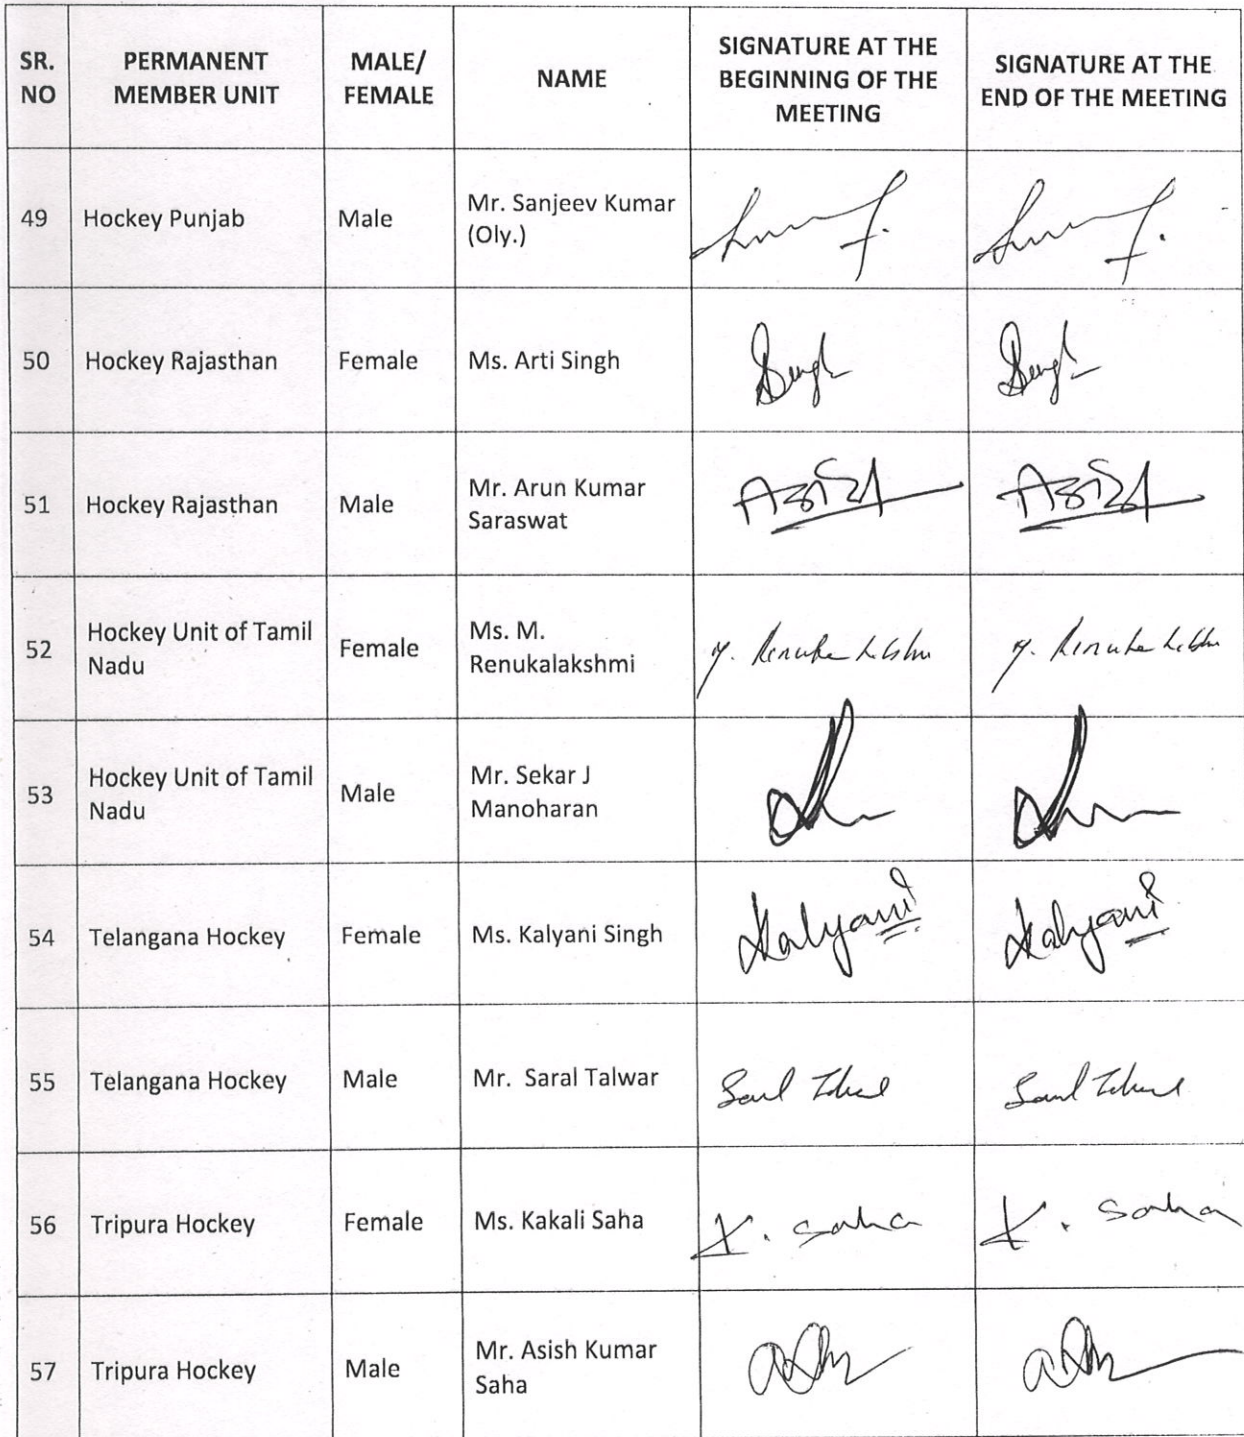 SR. NO
PERMANENT MEMBER UNIT
MALE/ FEMALE
NAME
SIGNATURE AT THE BEGINNING OF THE MEETING
SIGNATURE AT THE END OF THE MEETING
49
Hockey Punjab
Male
Mr. Sanjeev Kumar
(Oly.)
50
Hockey Rajasthan
Female
Ms. Arti Singh
Singh
Singh
51
Hockey Rajasthan
Male
Mr. Arun Kumar
Saraswat
52
Hockey Unit of Tamil
Nadu
Female
Ms. M.
Renukalakshmi
53
Hockey Unit of Tamil
Nadu
Male
Mr. Sekar J
Manoharan
54
Telangana Hockey
Female
Ms. Kalyani Singh
Kalyani
Kalyani
55
Telangana Hockey
Male
Mr. Saral Talwar
56
Tripura Hockey
Female
Ms. Kakali Saha
K. Saha
K. Saha
57
Tripura Hockey
Male
Mr. Asish Kumar
Saha